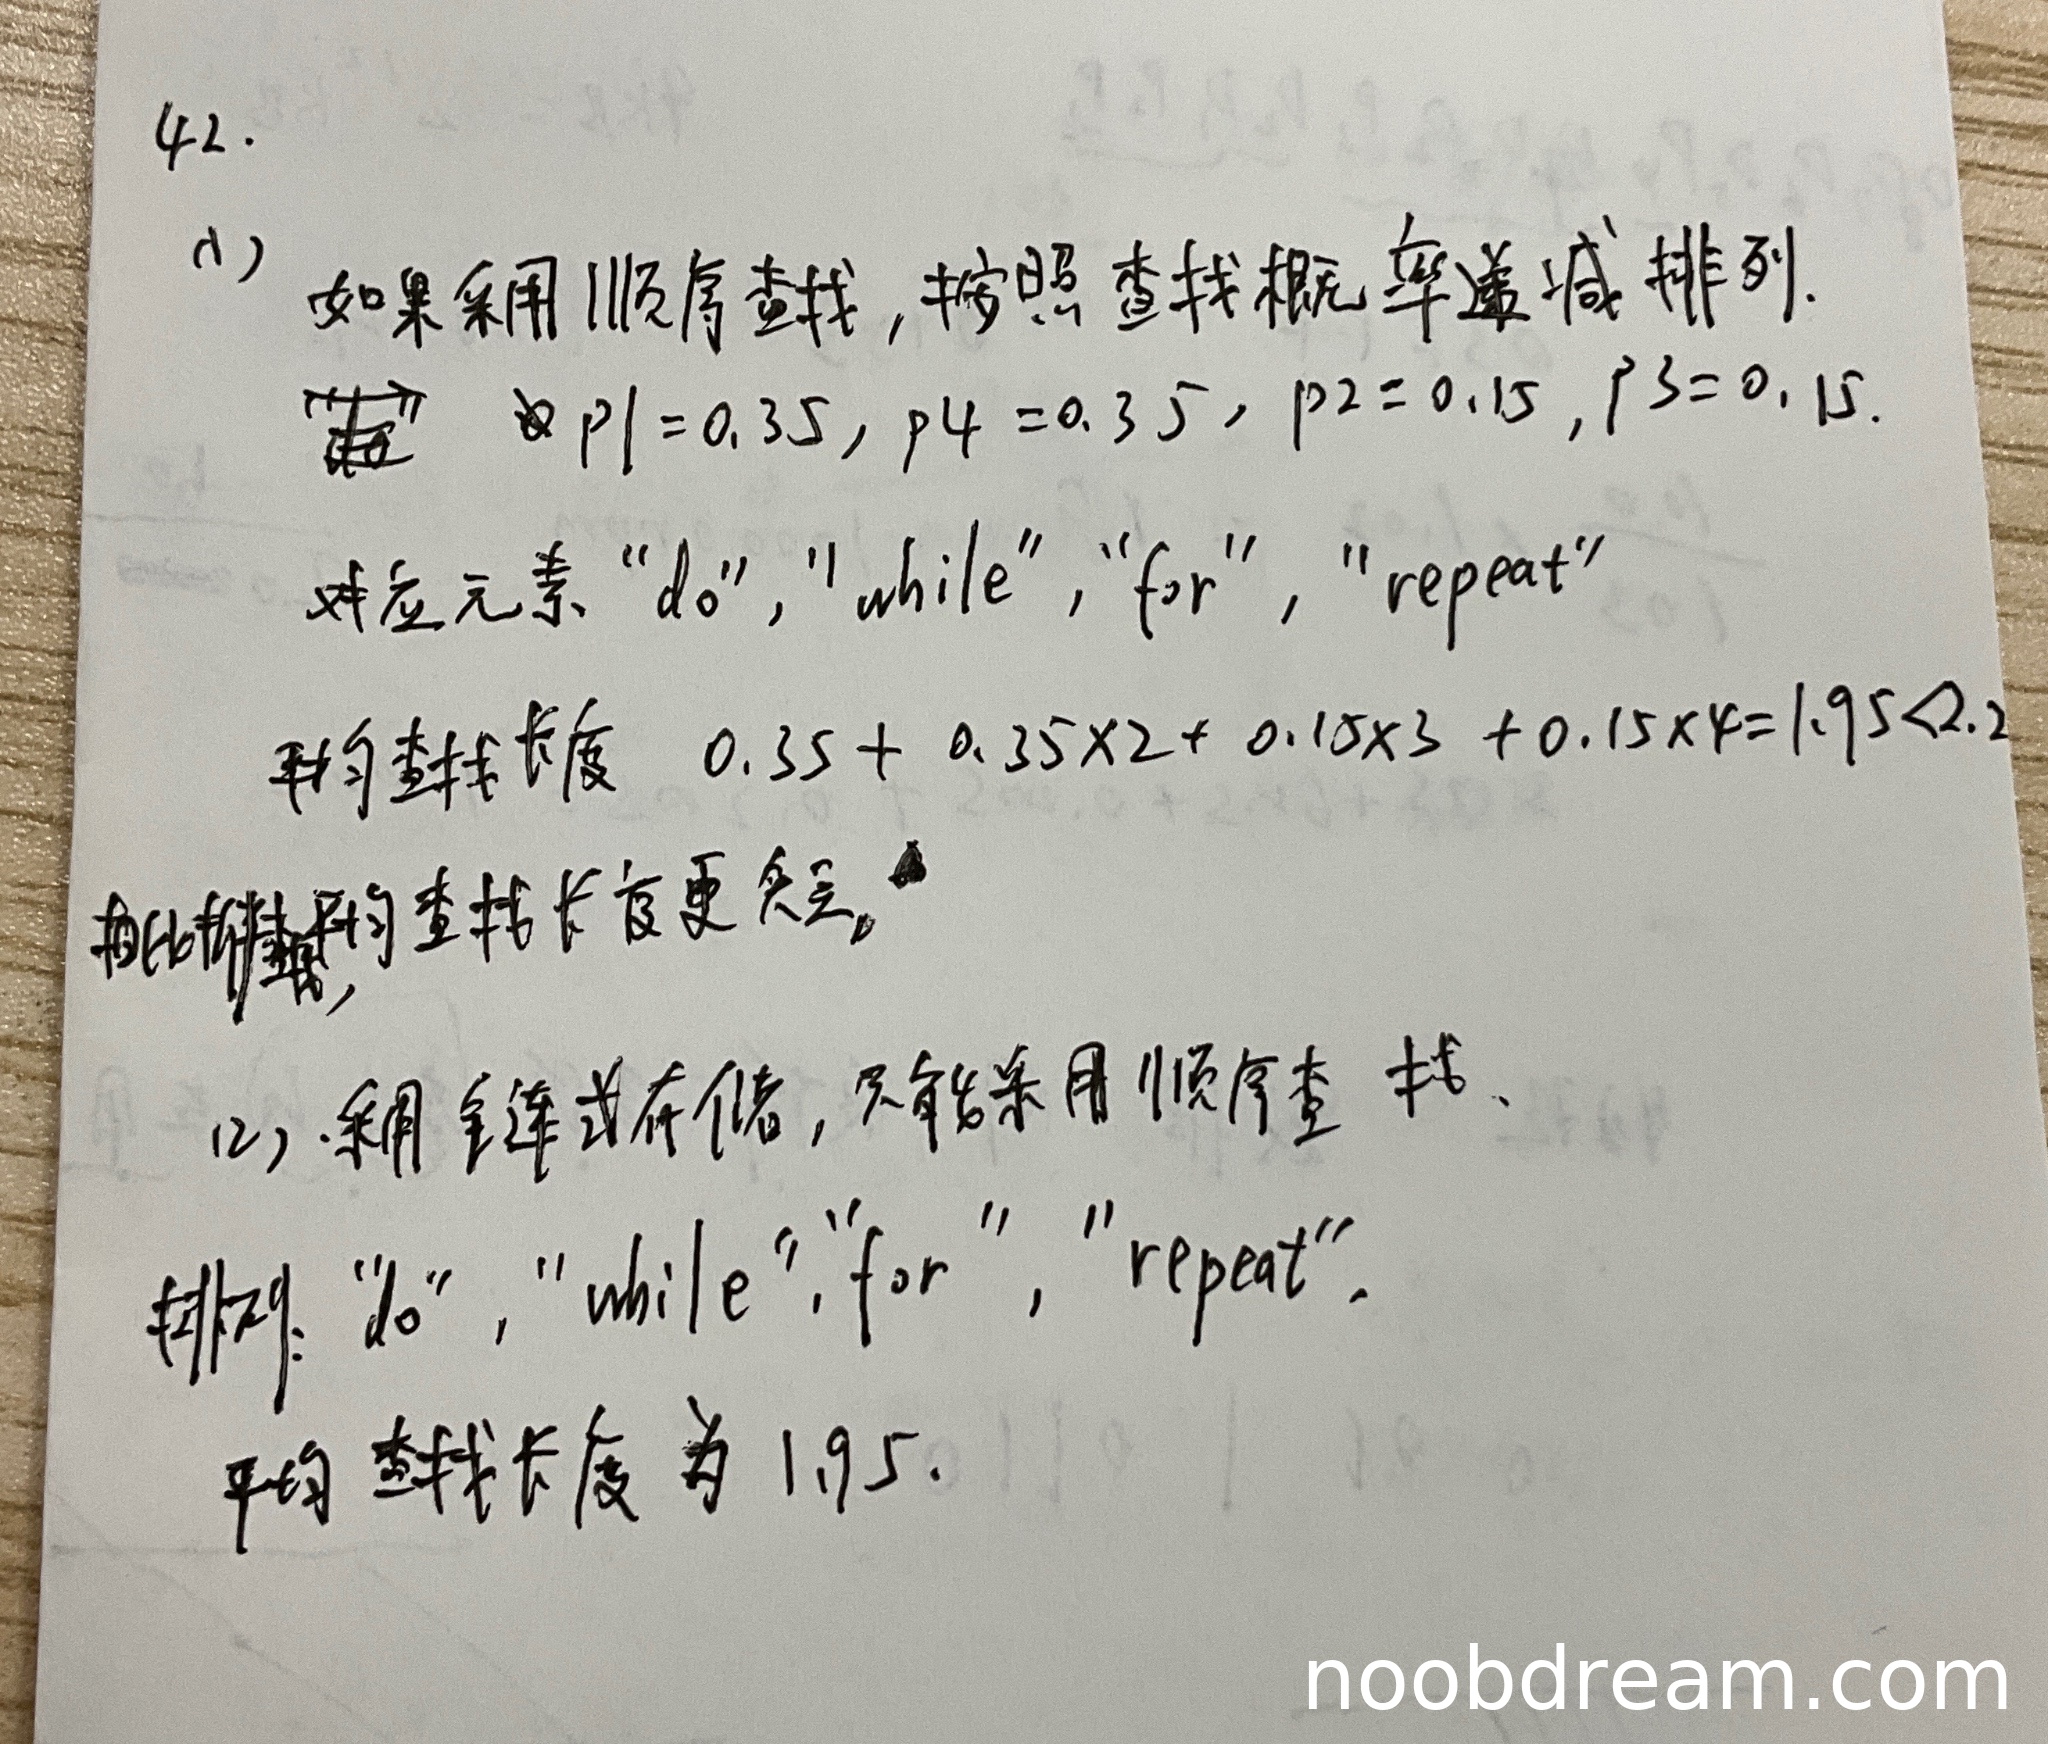 42.
(1)
如果采用顺序查找,按照查找概率递减排列.
p1=0.35, p4=0.35, p2=0.15, p3=0.15.
对应元素 "do", "while", "for", "repeat"
平均查找长度 0.35 + 0.35×2 + 0.15×3 + 0.15×4=1.95<2.2
相比 平均查找长度更短。
(2) 采用链式存储,只能采用顺序查找、
排列: "do", "while", "for", "repeat".
平均查找长度为 1.95.
noobdream.com